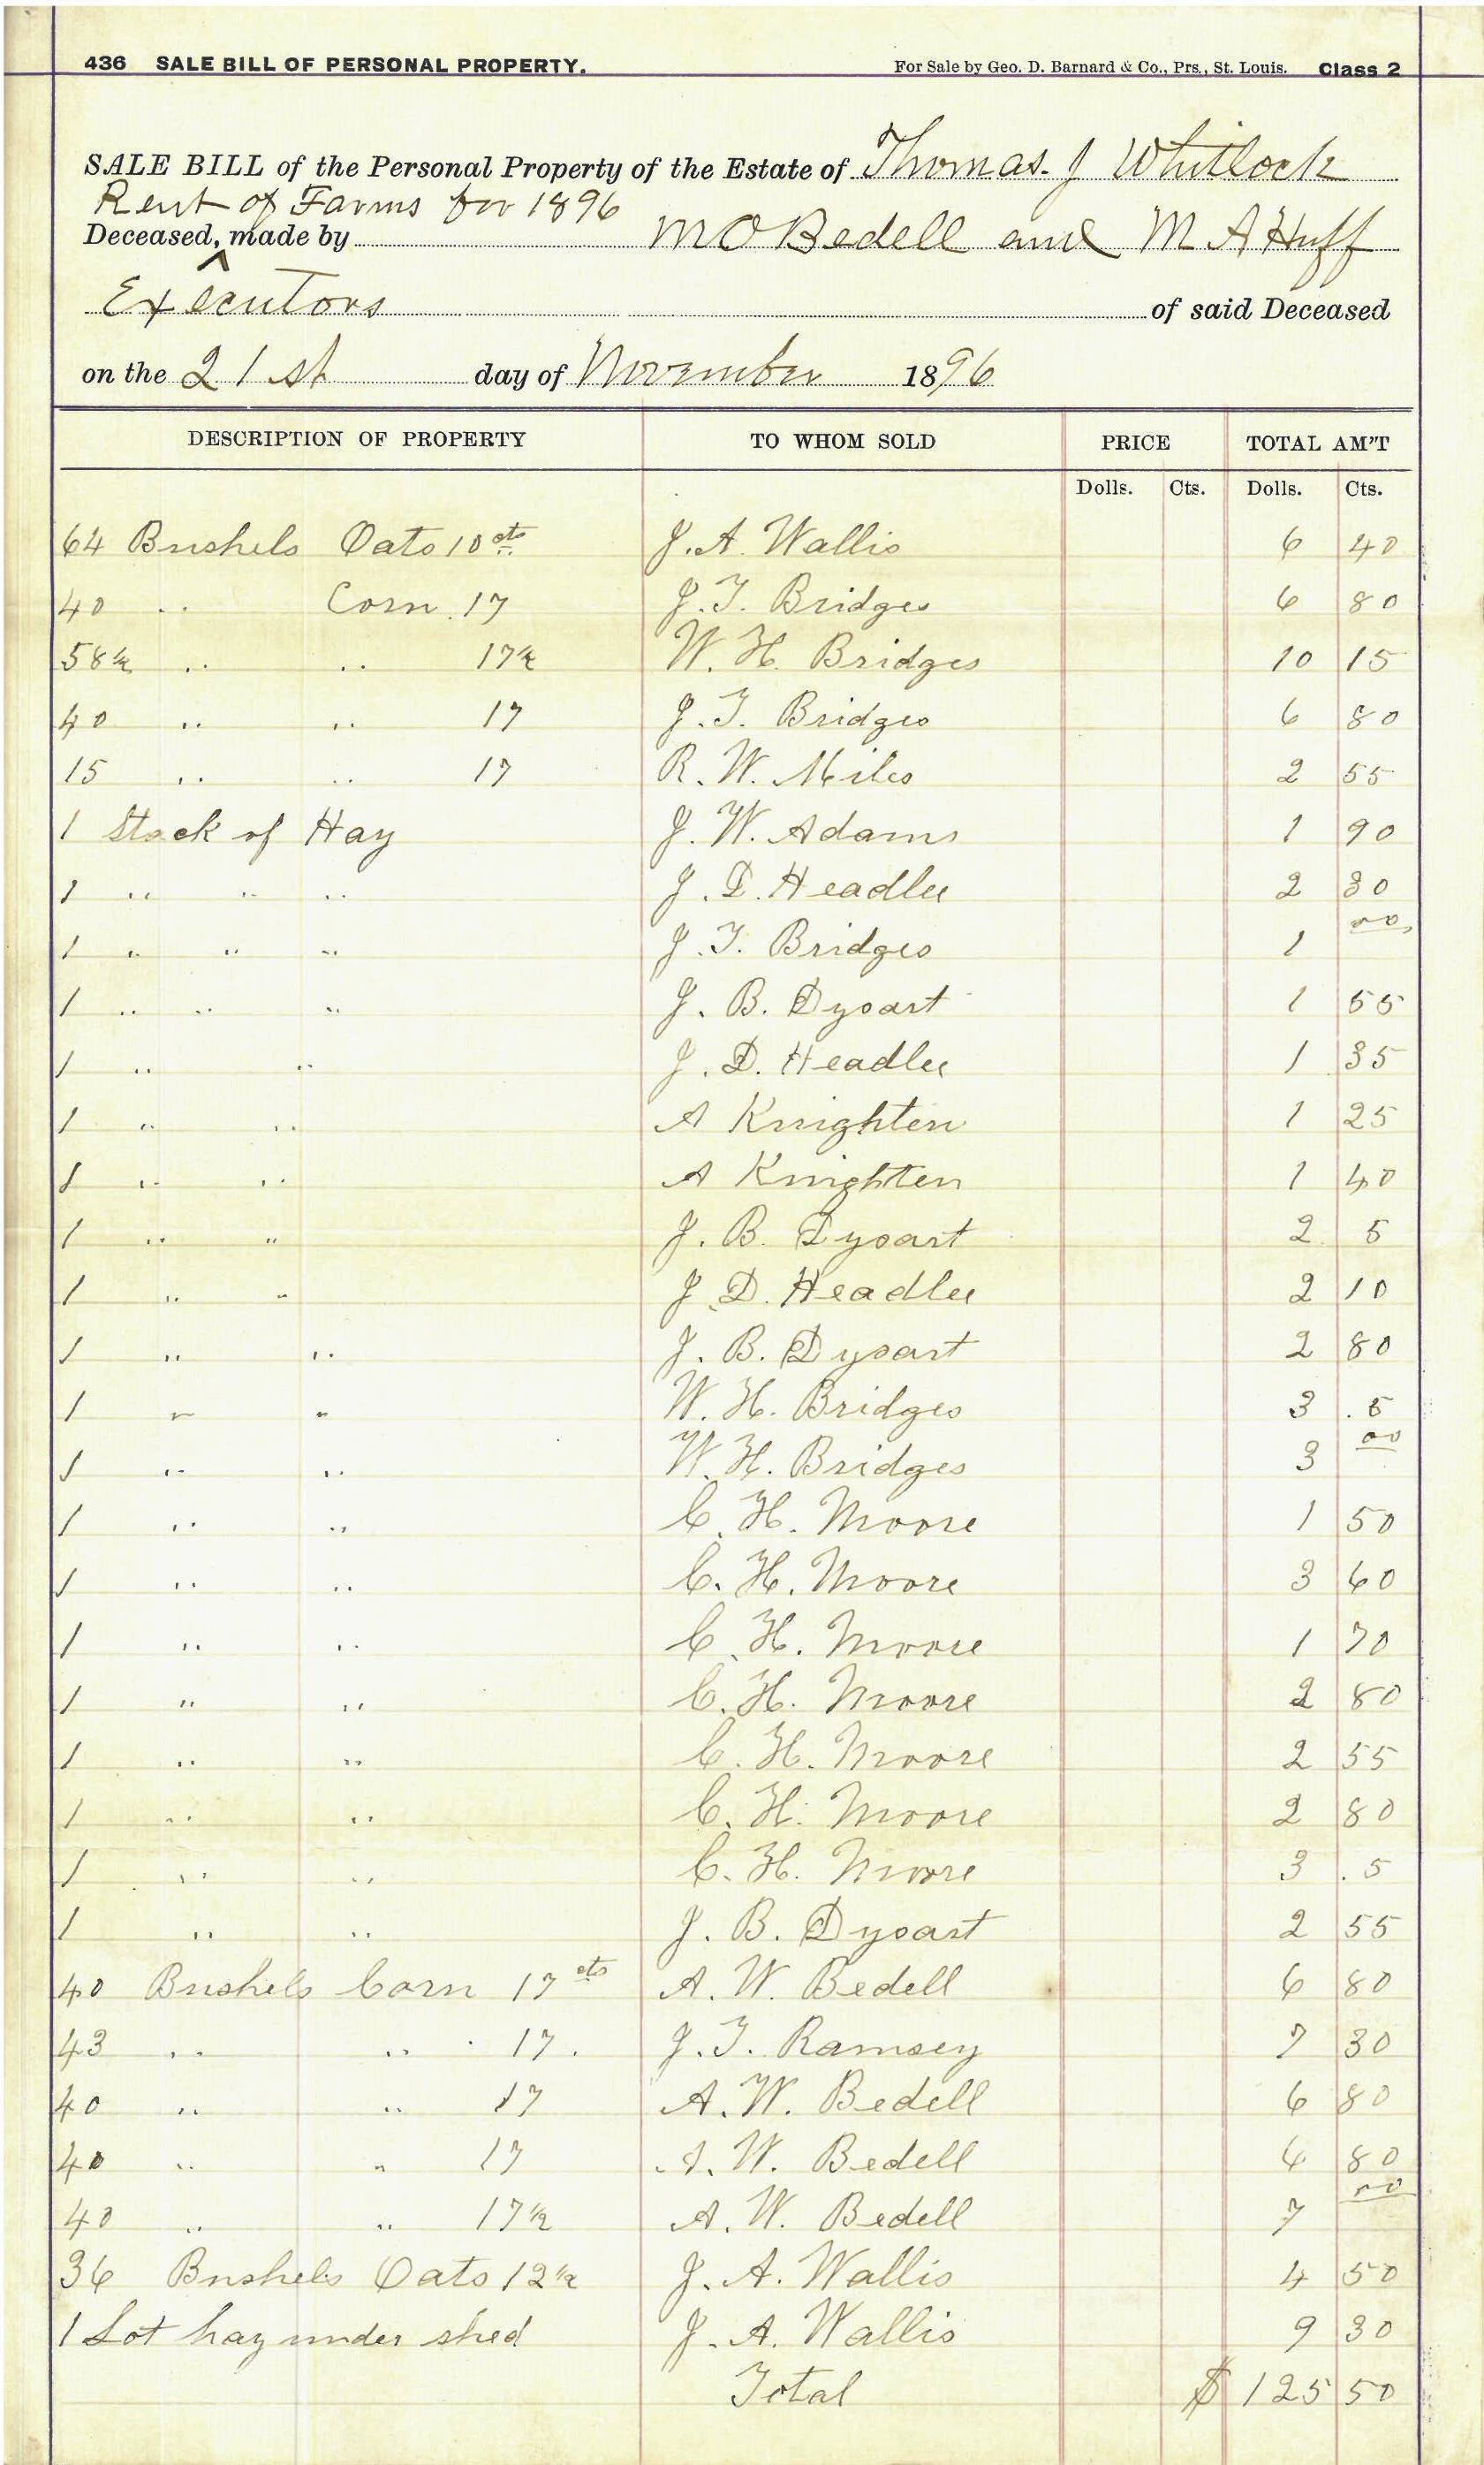 436 SALE BILL OF PERSONAL PROPERTY. For Sale by Geo. D. Barnard & Co., Prs., St. Louis. Class 2
SALE BILL of the Personal Property of the Estate of Thomas. J Whitlock
Rent of Farms for 1896
Deceased, ^ made by M O Bedell and M A Huff
Executors of said Deceased
on the 21st day of November 1896
DESCRIPTION OF PROPERTY TO WHOM SOLD PRICE TOTAL AM'T
Dolls. Cts. Dolls. Cts.
64 Bushels Oats 10 cts J. A. Wallis 6 40
40 .. Corn. 17 J. T. Bridges 6 80
58 ½ .. .. 17½ W. H. Bridges 10 15
40 .. .. 17 J. T. Bridges 6 80
15 .. .. 17 R. W. Miles 2 55
1 Stack of Hay J. W. Adams 1 90
1 .. .. .. J. D. Headlee 2 30
1 .. .. .. J. T. Bridges 1 00
1 .. .. .. J. B. Dysart 1 55
1 .. .. J. D. Headlee 1 35
1 .. .. A Knighten 1 25
1 .. .. A Knighten 1 40
1 .. .. J. B. Dysart 2 5
1 .. .. J. D. Headlee 2 10
1 .. .. J. B. Dysart 2 80
1 .. .. W. H. Bridges 3 . 5
1 .. .. W. H. Bridges 3 00
1 .. .. C. H. Moore 1 50
1 .. .. C. H. Moore 3 60
1 .. .. C. H. Moore 1 70
1 .. .. C. H. Moore 2 80
1 .. .. C. H. Moore 2 55
1 .. .. C. H. Moore 2 80
1 .. .. C. H. Moore 3 . 5
1 .. .. J. B. Dysart 2 55
40 Bushels Corn 17 cts A. W. Bedell 6 80
43 .. .. 17. J. T. Ramsey 7 30
40 .. .. 17 A. W. Bedell 6 80
40 .. .. 17 A. W. Bedell 6 80
40 .. .. 17½ A. W. Bedell 7 00
36 Bushels Oats 12½ J. A. Wallis 4 50
1 Lot hay under shed J. A. Wallis 9 30
Total $ 125 50